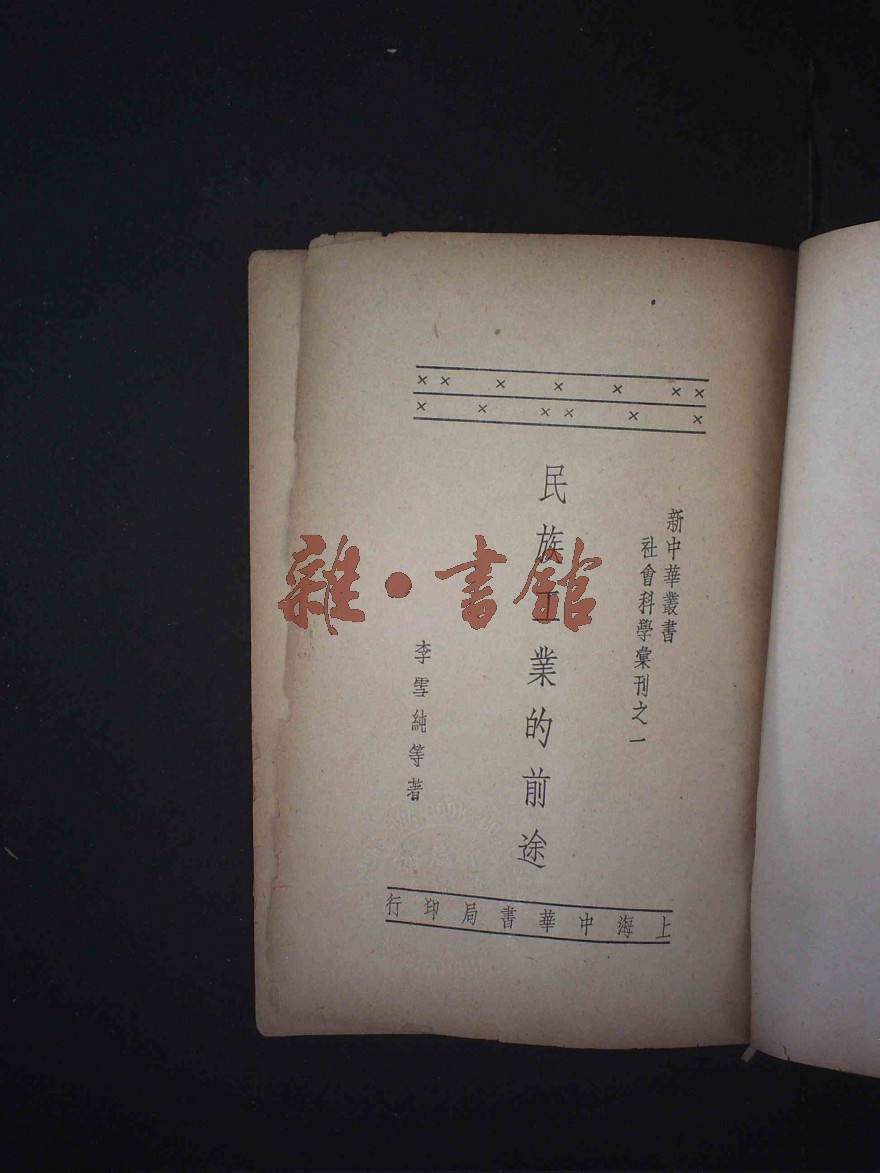 新中華叢書
社會科學彙刊之一
民族工業的前途
李雪純等著
上海中華書局印行
雜·書館